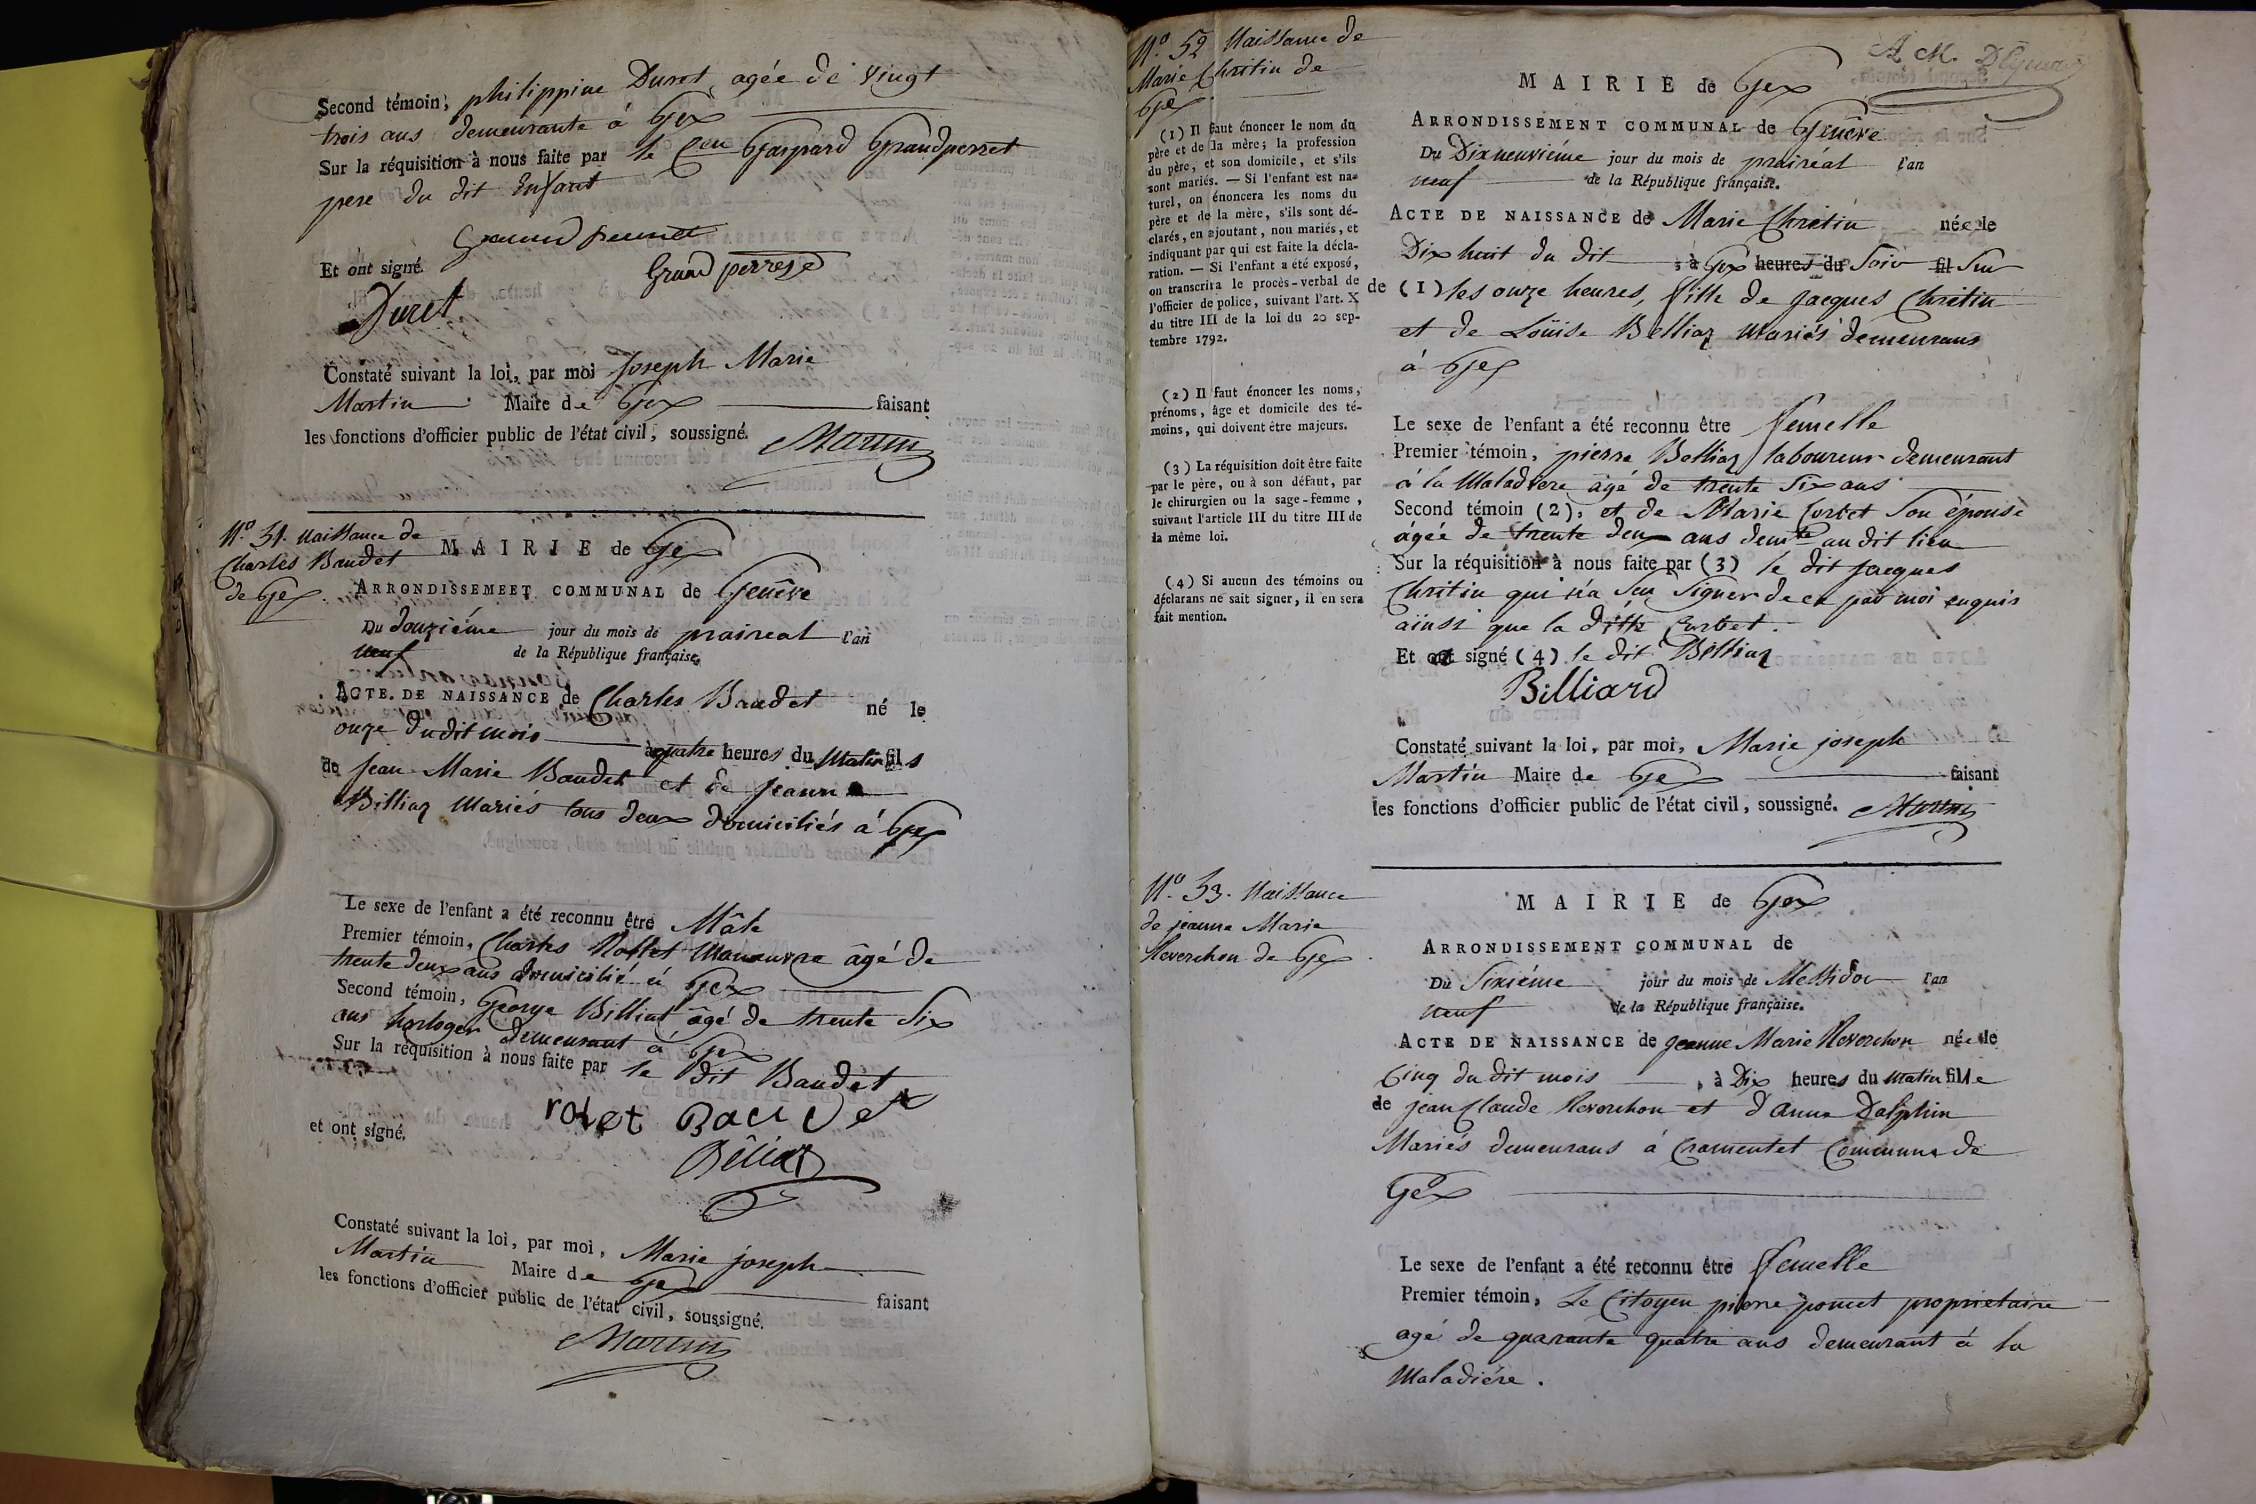 Second témoin, philippine Duret, agée de vingt
trois ans demeurante á Gex
Sur la réquisition à nous faite par le Cen Gaspard Grandperret
pere du dit Enfant
Grandperret
Et ont signé. Grand perret
Duret
Constaté suivant la loi, par moi Joseph Marie
Martin Maire de Gex faisant
les fonctions d'officier public de l'état civil, soussigné. Martin
N.° 51. Naissance de
Charles Baudet
de Gex.
MAIRIE de Gex
ARRONDISSEMEET COMMUNAL de Genêve
Du Douziéme jour du mois de praireal l'an
neuf de la République française.
ACTE DE NAISSANCE de Charles Baudet né le
onze du dit mois à quatre heures du Matin fils
de Jean Marie Baudet et de Jeanne
Billiaz Mariés tous deux domiciliés á Gex
Le sexe de l'enfant a été reconnu être Mâle
Premier témoin, Charles Rollet Manœuvre âgé de
trente deux ans domicilié á Gex
Second témoin, George Billiat âgé de trente Six
ans horloger demeurant á Gex
Sur la réquisition à nous faite par le dit Baudet
rolet Baudet
et ont signé.
Béliaz
Constaté suivant la loi, par moi, Marie joseph
Martin Maire de Gex faisant
les fonctions d'officier public de l'état civil, soussigné.
Martin
N.° 52 Naissance de
Marie Chritin de
Gex
(1) Il faut énoncer le nom du
père et de la mère; la profession
du père, et son domicile, et s'ils
sont mariés. — Si l'enfant est na-
turel, on énoncera les noms du
père et de la mère, s'ils sont dé-
clarés, en ajoutant, non mariés, et
indiquant par qui est faite la décla-
ration. — Si l'enfant a été exposé,
on transcrira le procès-verbal de
l'officier de police, suivant l'art. X
du titre III de la loi du 20 sep-
tembre 1792.
(2) Il faut énoncer les noms,
prénoms, âge et domicile des té-
moins, qui doivent être majeurs.
(3) La réquisition doit être faite
par le père, ou à son défaut, par
le chirurgien ou la sage-femme,
suivant l'article III du titre III de
la même loi.
(4) Si aucun des témoins ou
déclarans ne sait signer, il en sera
fait mention.
A. M.
MAIRIE de Gex
ARRONDISSEMENT COMMUNAL de Genêve
Du Dixneuviéme jour du mois de prairéal l'an
neuf de la République française.
ACTE DE NAISSANCE de Marie Chritin née le
Dix huit du dit , à Gex heures du Soir fil Sur
de (1) les onze heures, fille de Jacques Chritin
et de Loüise Billiaz Mariés demeurans
á Gex
Le sexe de l'enfant a été reconnu être femelle
Premier témoin, pierre Belliaz laboureur demeurant
á la Maladiere âgé de trente Six ans
Second témoin (2), et de Marie Corbet Son épouse
âgée de trente deux ans demte au dit lieu
Sur la réquisition à nous faite par (3) le dit Jacques
Chritin qui n'a Scu Signer de ce par moi enquis
ainsi que la ditte Corbet.
Et ont signé (4) le dit Billiaz
Billiard
Constaté suivant la loi, par moi, Marie joseph
Martin Maire de Gex faisant
les fonctions d'officier public de l'état civil, soussigné. Martin
N.° 53. Naissance
de jeanne Marie
Reverchon de Gex
MAIRIE de Gex
ARRONDISSEMENT COMMUNAL de
Du Sixiéme jour du mois de Messidor l'an
neuf de la République française.
ACTE DE NAISSANCE de jeanne Marie Reverchon née le
Cinq du dit mois , à Dix heures du Matin fille
de jean Claude Reverchon et d'anne Dalphin
Mariés demeurans á Cramentet Commune de
Gex
Le sexe de l'enfant a été reconnu être femelle
Premier témoin, Le Citoyen pierre poncet proprietaire
agé de quarante quatre ans demeurant á la
Maladiére.